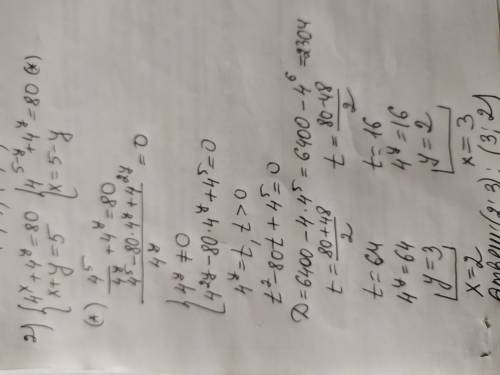 2) { 4^x + 4^y = 80 { 4^(5-y) + 4^y = 80 (*)
x + y = 5 x = 5 - y
(*) 4^5/4^y + 4^y = 80
(4^5 - 80·4^y + 4^(2y))/4^y = 0
{ 4^y ≠ 0
4^(2y) - 80·4^y + 4^5 = 0
4^y = t, t > 0
t² - 80t + 4^5 = 0
D = 6400 - 4·4^5 = 6400 - 4^6 = 2304
t = (80+48)/2 t = (80-48)/2
t = 64 t = 16
4^y = 64 4^y = 16
y = 3 y = 2
x = 2 x = 3
(2; 3); (3; 2)